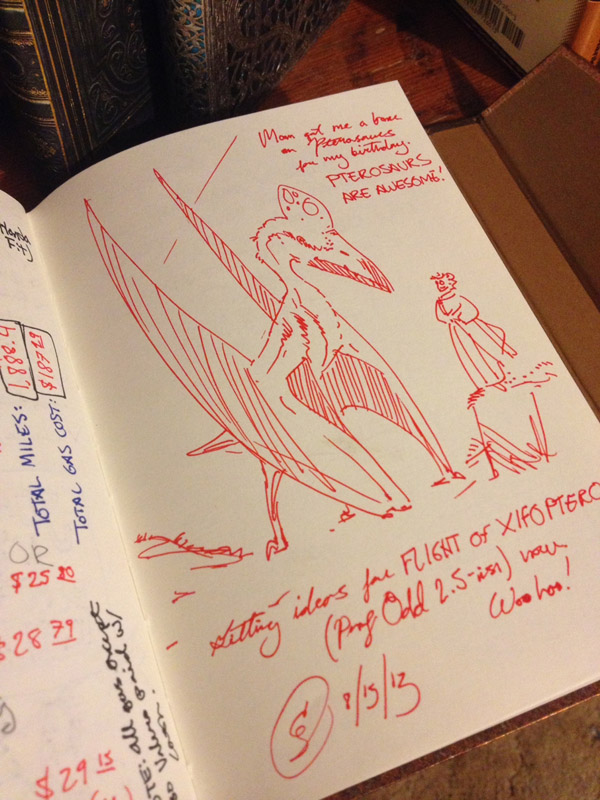 Mom got me a book
on Pterosaurs
for my birthday.
PTEROSAURS
ARE AWESOME!
Getting ideas for FLIGHT OF XIFOPTERO
(Prof Odd 2.5-ish) now
Woohoo!
8/15/13
TOTAL MILES:
TOTAL GAS COST:
OR
$25 20
$28 79
$29 15
NOTE: All gas except